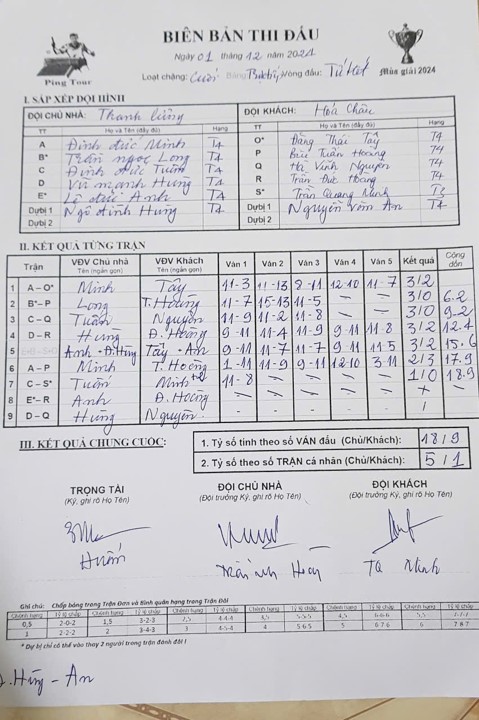 BIÊN BẢN THI ĐẤU
Ngày 01 tháng 12 năm 2024
Ping Tour
Loại chặng: Cuối Bảng: Vòng đấu: Tứ kết
Mùa giải 2024
I. SẮP XẾP ĐỘI HÌNH
ĐỘI CHỦ NHÀ: Thanh Tùng ĐỘI KHÁCH: Hoà Châu
TT Họ và Tên (đầy đủ) Hạng Họ và Tên (đầy đủ) Hạng
A Đinh Đức Minh T4 O* Đặng Thái Tây T4
B* Trần Ngọc Long T4 P Bùi Tuấn Hoàng T4
C Đinh Đức Tuấn T4 Q Hà Vĩnh Nguyên T4
D Vũ Mạnh Hùng T4 R Trần Đức Hoàng T4
E* Lê Đức Anh T4 S* Trần Quang Minh T3
Dự bị 1 Ngô Đình Hùng T4 Dự bị 1 Nguyễn Văn An T4
Dự bị 2 Dự bị 2
II. KẾT QUẢ TỪNG TRẬN
Trận VĐV Chủ nhà VĐV Khách Ván 1 Ván 2 Ván 3 Ván 4 Ván 5 Kết quả Cộng dồn
Tên (ngắn gọn) Tên (ngắn gọn)
1 A – O* Minh Tây 11-3 11-13 8-11 12-10 11-7 3/2
2 B* – P Long T. Hoàng 11-7 15-13 11-5 – – 3/0 6-2
3 C – Q Tuấn Nguyên 11-9 11-2 11-8 – – 3/0 9-2
4 D – R Hùng Đ. Hoàng 9-11 11-4 11-9 9-11 11-8 3/2 12-4
5 Anh - Đ.Hùng Tây - An 9-11 11-7 11-7 9-11 11-5 3/2 15-6
6 A – P Minh T. Hoàng 1-11 11-9 9-11 12-10 3-11 2/3 17-9
7 C – S* Tuấn Minh 11-8 – – – – 1/0 18-9
8 E* – R Anh Đ. Hoàng - - - - -
9 D – Q Hùng Nguyên - - - - -
III. KẾT QUẢ CHUNG CUỘC:
1. Tỷ số tính theo số VÁN đấu (Chủ/Khách): 18/9
2. Tỷ số theo số TRẬN cá nhân (Chủ/Khách): 5/1
TRỌNG TÀI ĐỘI CHỦ NHÀ ĐỘI KHÁCH
(Ký, ghi rõ Họ Tên) (Đội trưởng Ký, ghi rõ Họ Tên) (Đội trưởng Ký, ghi rõ Họ Tên)
Tạ Minh
Ghi chú: Chấp bóng trong Trận Đơn và Bình quân hạng trong Trận Đôi
Chênh hạng Tỷ lệ chấp Chênh hạng Tỷ lệ chấp Chênh hạng Tỷ lệ chấp Chênh hạng Tỷ lệ chấp Chênh hạng Tỷ lệ chấp
0,5 2-0-2 1,5 3-2-3 2,5 4-4-4 3,5 5-5-5 4,5 6-6-6 5,5 7-7-7
1 2-2-2 2 3-4-3 3 4-5-4 4 5-6-5 5 6-7-6 6 7-8-7
* Dự bị chỉ có thể vào thay 2 người trong trận đánh đôi !
Đ. Hùng - An